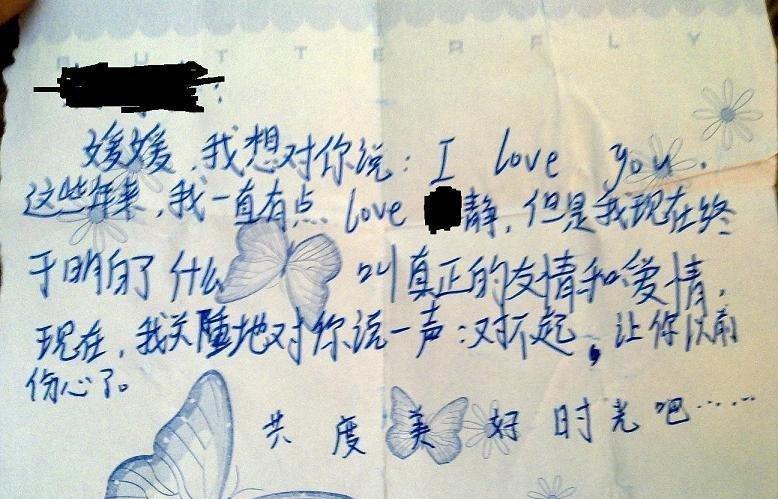 BUTTERFLY
:
媛媛,我想对你说:I love you.
这些年来,我一直有点 love 静,但是我现在终
于明白了什么叫真正的友情和爱情,
现在,我关地对你说一声:对不起,让你以前
伤心了。
共度美好时光吧……